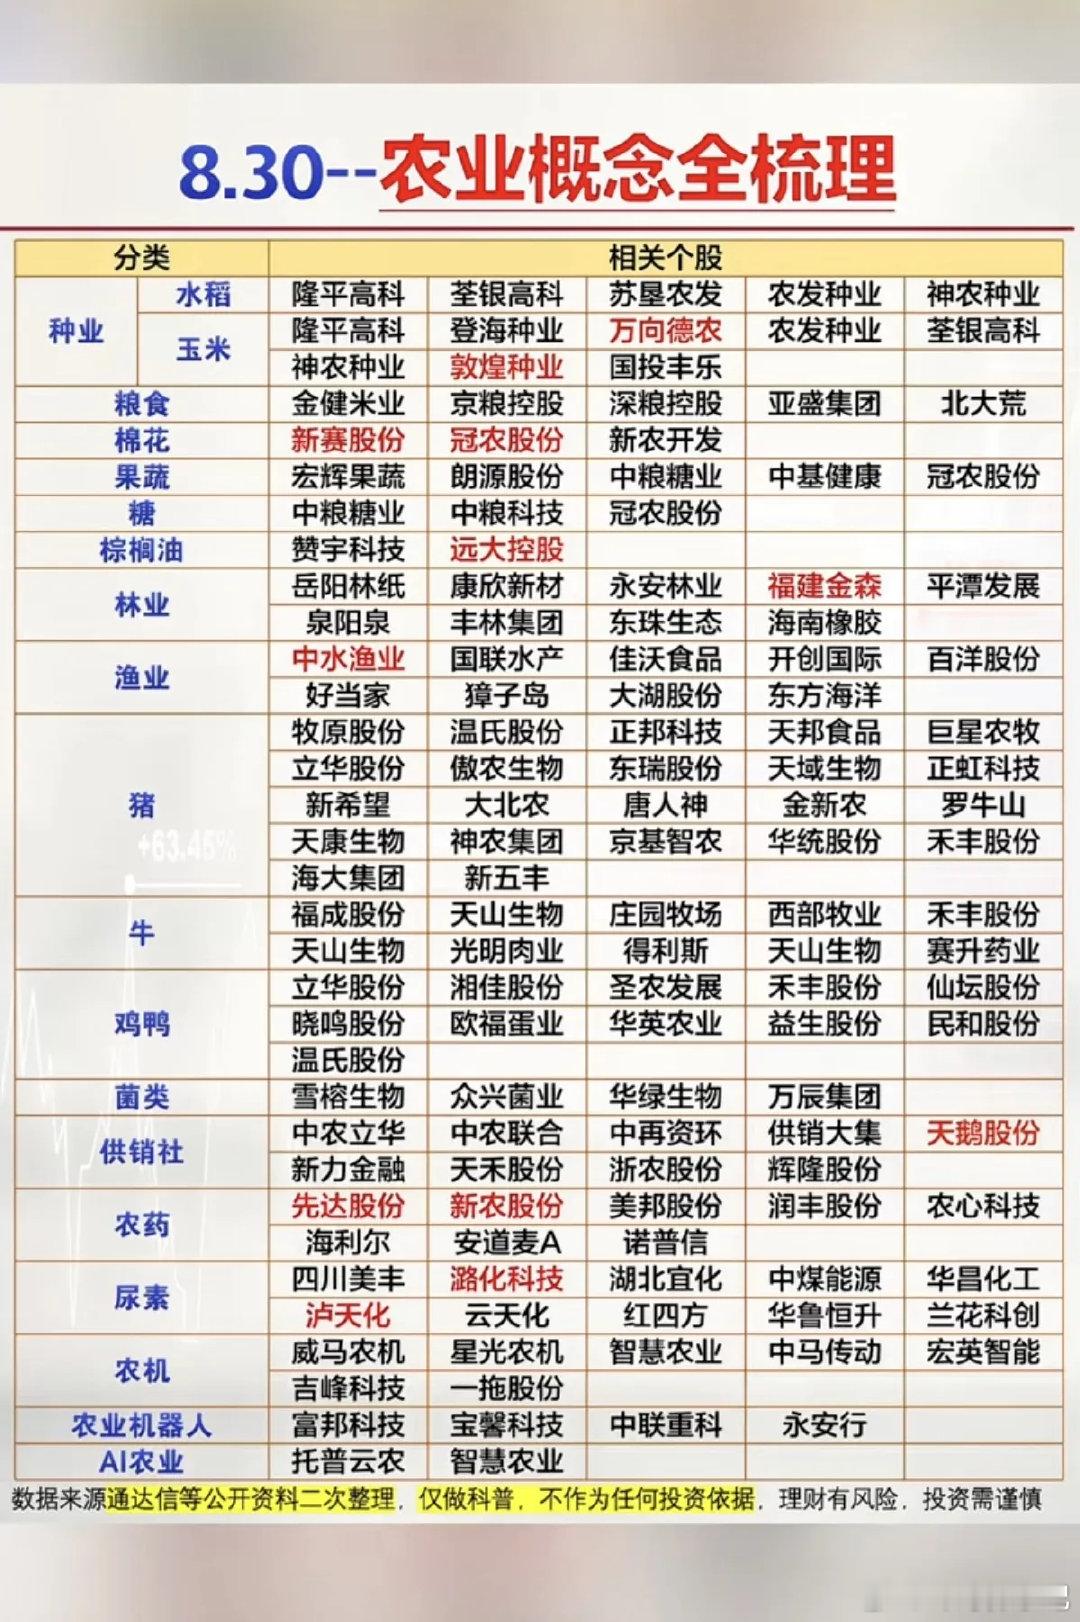 8.30--农业概念全梳理
分类 相关个股
种业 水稻 隆平高科 荃银高科 苏垦农发 农发种业 神农种业
玉米 隆平高科 登海种业 万向德农 农发种业 荃银高科
神农种业 敦煌种业 国投丰乐
粮食 金健米业 京粮控股 深粮控股 亚盛集团 北大荒
棉花 新赛股份 冠农股份 新农开发
果蔬 宏辉果蔬 朗源股份 中粮糖业 中基健康 冠农股份
糖 中粮糖业 中粮科技 冠农股份
棕榈油 赞宇科技 远大控股
林业 岳阳林纸 康欣新材 永安林业 福建金森 平潭发展
泉阳泉 丰林集团 东珠生态 海南橡胶
渔业 中水渔业 国联水产 佳沃食品 开创国际 百洋股份
好当家 獐子岛 大湖股份 东方海洋
猪 牧原股份 温氏股份 正邦科技 天邦食品 巨星农牧
立华股份 傲农生物 东瑞股份 天域生物 正虹科技
新希望 大北农 唐人神 金新农 罗牛山
天康生物 神农集团 京基智农 华统股份 禾丰股份
海大集团 新五丰
+63.45%
牛 福成股份 天山生物 庄园牧场 西部牧业 禾丰股份
天山生物 光明肉业 得利斯 天山生物 赛升药业
鸡鸭 立华股份 湘佳股份 圣农发展 禾丰股份 仙坛股份
晓鸣股份 欧福蛋业 华英农业 益生股份 民和股份
温氏股份
菌类 雪榕生物 众兴菌业 华绿生物 万辰集团
供销社 中农立华 中农联合 中再资环 供销大集 天鹅股份
新力金融 天禾股份 浙农股份 辉隆股份
农药 先达股份 新农股份 美邦股份 润丰股份 农心科技
海利尔 安道麦A 诺普信
尿素 四川美丰 潞化科技 湖北宜化 中煤能源 华昌化工
泸天化 云天化 红四方 华鲁恒升 兰花科创
农机 威马农机 星光农机 智慧农业 中马传动 宏英智能
吉峰科技 一拖股份
农业机器人 富邦科技 宝馨科技 中联重科 永安行
AI农业 托普云农 智慧农业
数据来源通达信等公开资料二次整理，仅做科普，不作为任何投资依据，理财有风险，投资需谨慎